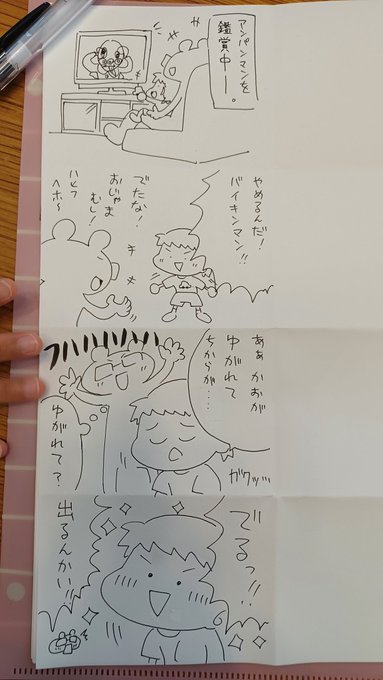 アンパンマンを
鑑賞中ー。
やめるんだ!
バイキンマン!!
でたな!
おじゃま
むし!
ハヒフ
ヘホ~
あぁかおが
ゆがれて
ちからが・・・・
ガクッッ
フハハハハハハ
ゆがれて?
でるっ!!
出るんかい!!